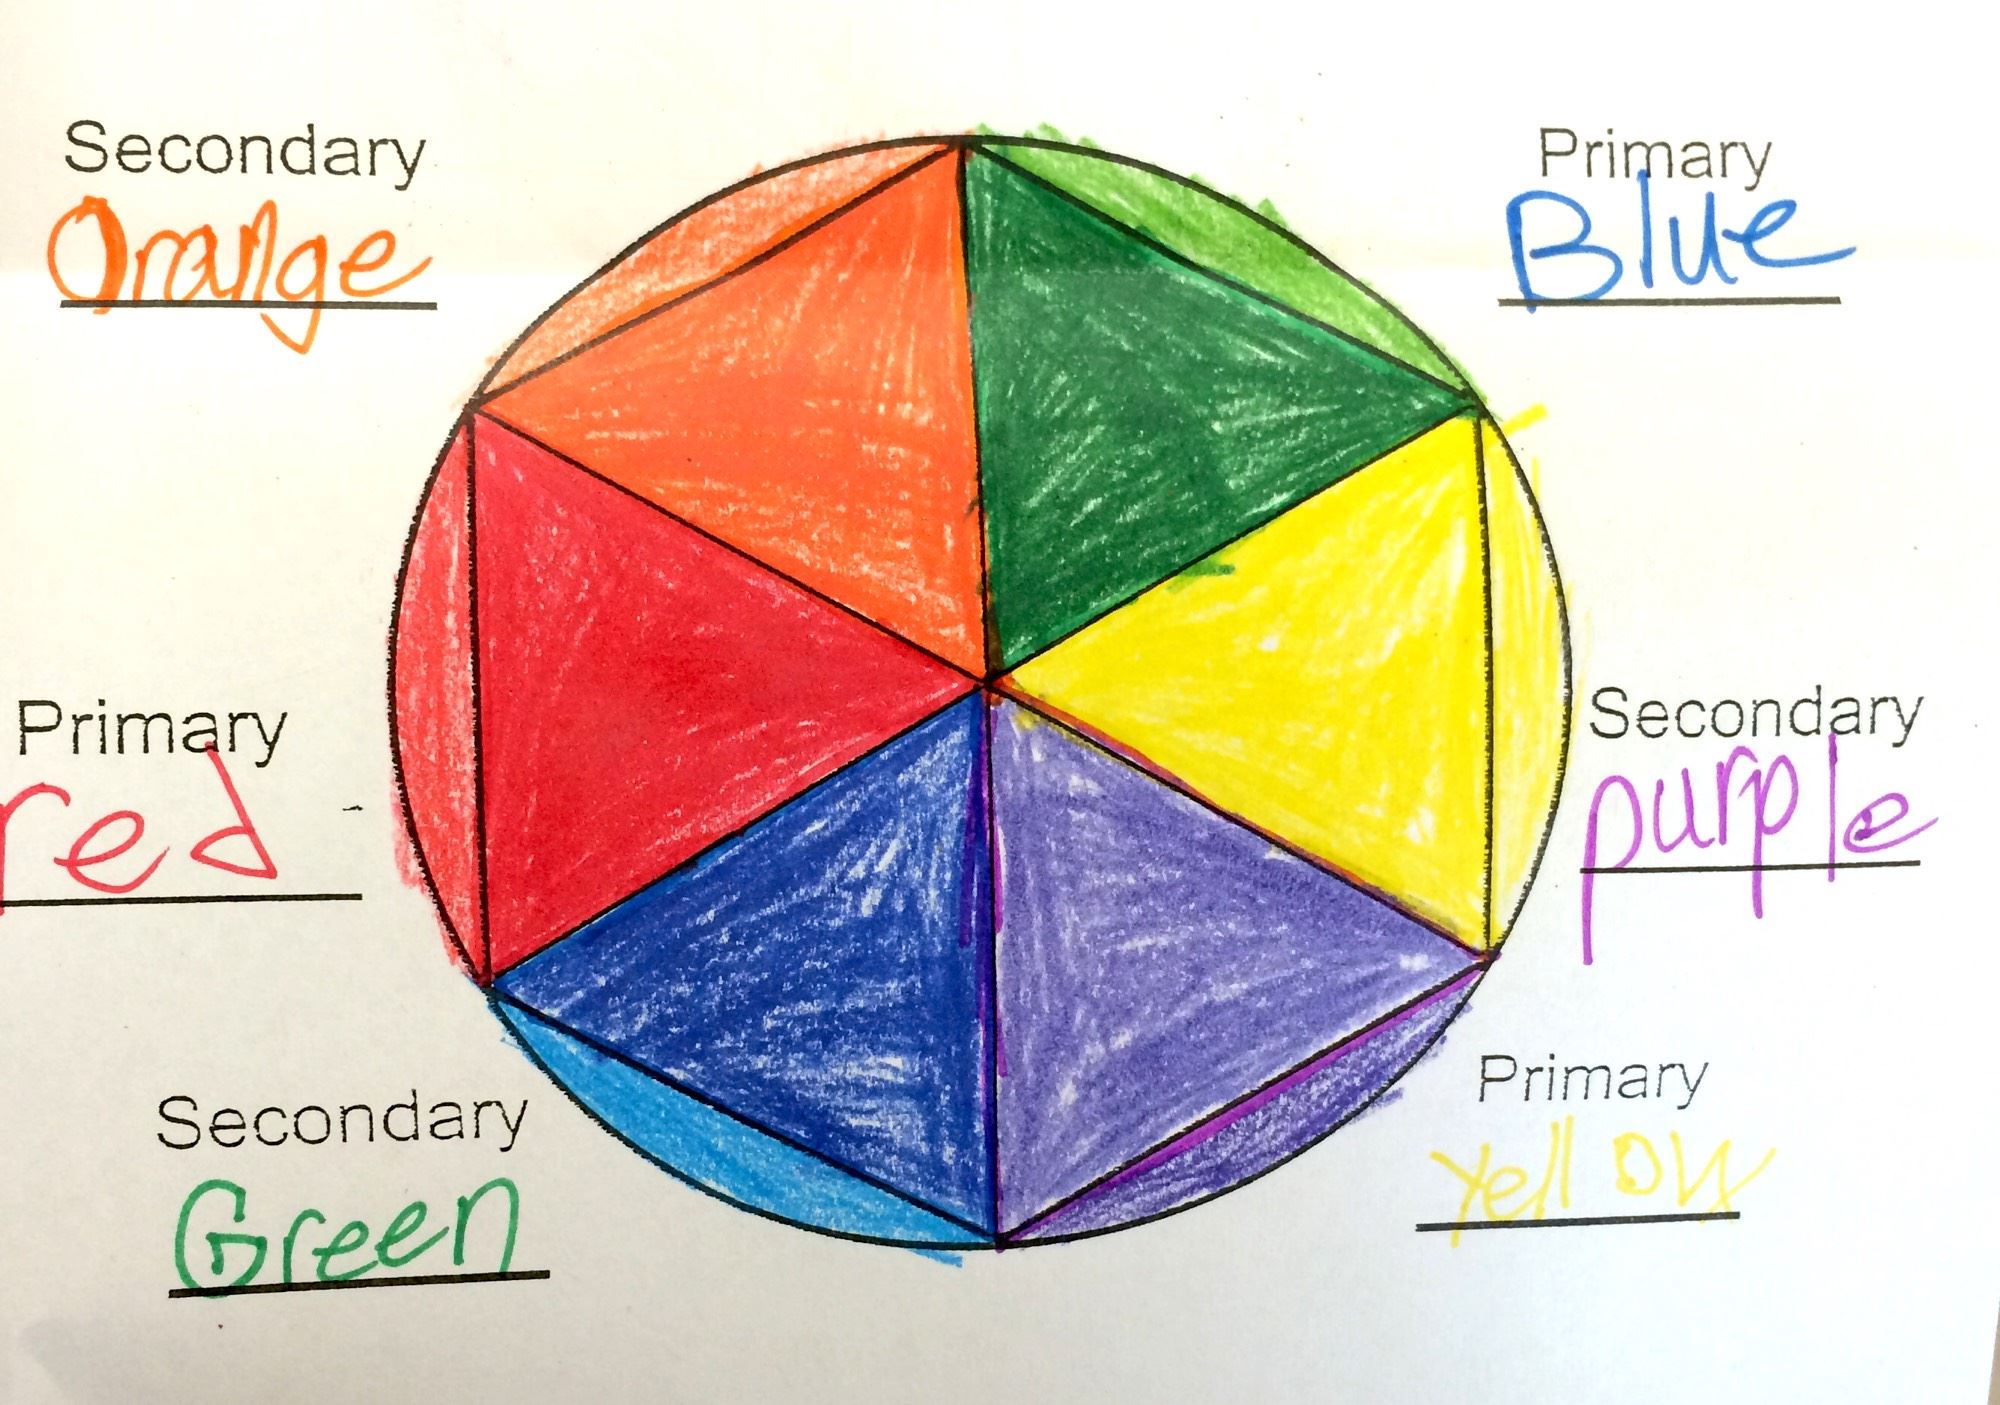 Secondary
Orange
Primary
Blue
Primary
red
Secondary
purple
Secondary
Green
Primary
Yellow